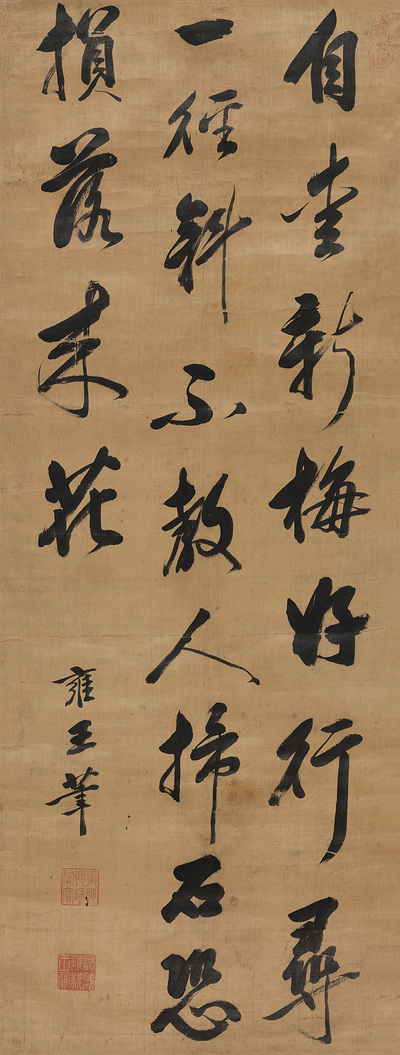 自愛新梅好行尋
一徑斜不教人掃石恐
損落來花
雍王筆